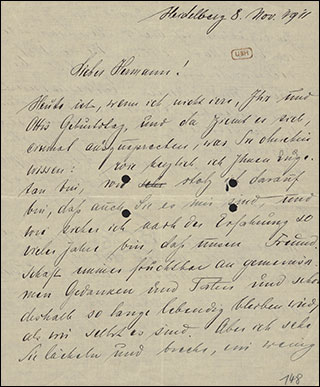 Heidelberg 8. Nov. 1911
Lieber Hermann!
Heute ist, wenn ich nicht irre, Ihr und
Ottis Geburtstag. Und da ziemt es sich,
einmal auszusprechen, was Sie ohnehin
wissen: wie herzlich ich Ihnen zuge-
tan bin, wie sehr stolz ich darauf
bin, daß auch Sie es mir sind – und
wie sicher ich nach der Erfahrung so
vieler Jahre bin, daß unsere Freund-
schaft immer fruchtbar an gemeinsa-
men Gedanken und Taten und schon
deshalb so lange lebendig bleiben wird,
als wir selbst es sind. Aber ich sehe
Sie lächeln und breche, ein wenig
148